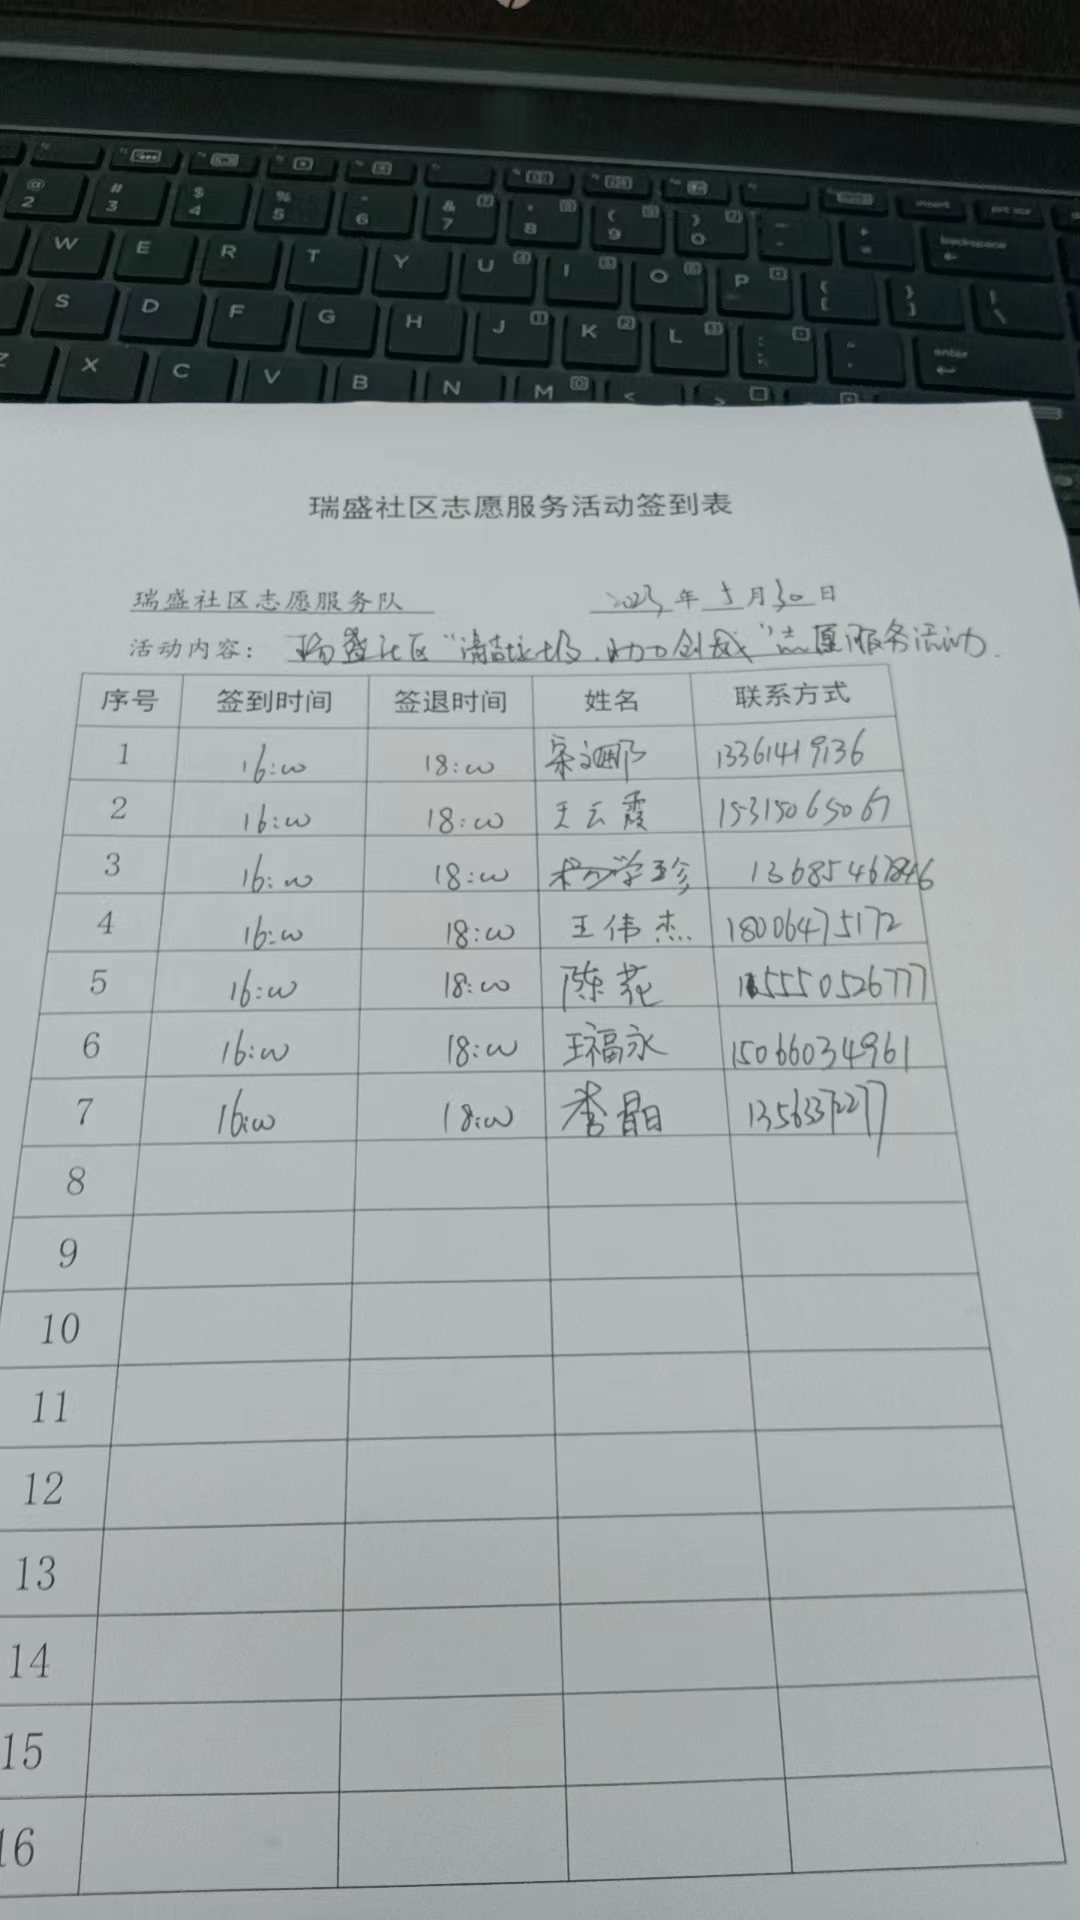 @ 2 # 3 $ 4 % 5 ^ 6 & 7 * 8 ( 9 ) 0 - + = backspace
insert prt scr
W E R T Y U I O P { [ } ] | \
S D F G H J K L : ; " ' enter
Z X C V B N M < >
瑞盛社区志愿服务活动签到表
瑞盛社区志愿服务队 2023年5月30日
活动内容：瑞盛社区"清 助力创城"志愿服务活动.
序号 签到时间 签退时间 姓名 联系方式
1 16:00 18:00 宋 娜 13361419136
2 16:00 18:00 王云霞 15315065067
3 16:00 18:00 学珍
4 16:00 18:00 王伟杰 18006475172
5 16:00 18:00 陈花 15550526777
6 16:00 18:00 王福永 15066034961
7 16:00 18:00 李晶 13563372277
8
9
10
11
12
13
14
15
16